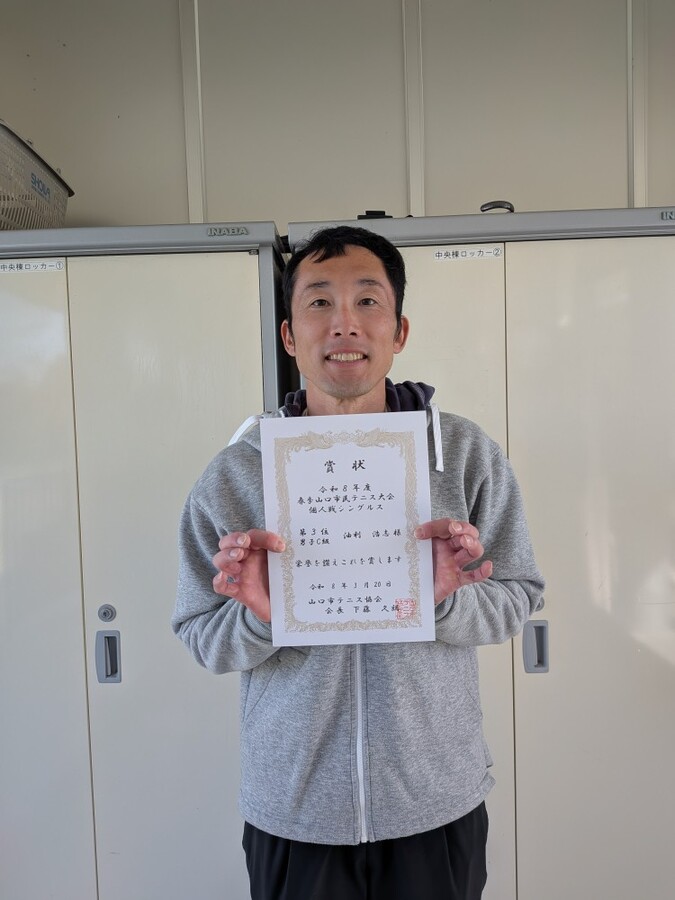 SHOWA
INABA
IN
中央棟ロッカー①
中央棟ロッカー②
賞 状
令和8年度
春季山口市民テニス大会
個人戦シングルス
第3位
男子C級 油利 浩志 様
栄誉を讃えこれを賞します
令和 8 年 3 月 20 日
山口市テニス協会
会長 下藤